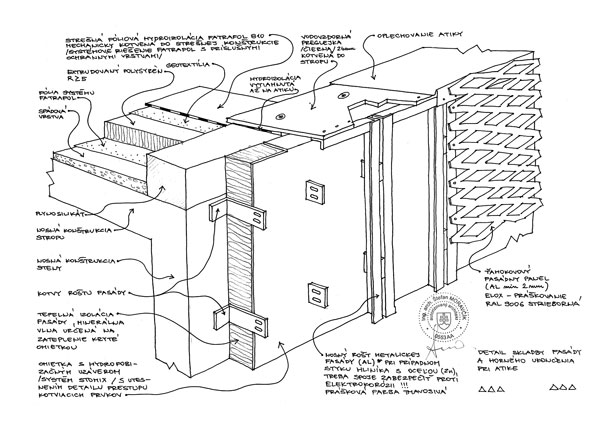 STREŠNÁ FÓLIOVÁ HYDROIZOLÁCIA FATRAFOL 810
MECHANICKY KOTVENÁ DO STREŠNEJ KONŠTRUKCIE
/SYSTÉMOVÉ RIEŠENIE FATRAFOL S PRÍSLUŠNÝMI
OCHRANNÝMI VRSTVAMI/
GEOTEXTÍLIA
EXTRUDOVANÝ POLYSTYRÉN
FÓLIA SYSTÉMU
FATRAFOL
SPÁDOVÁ
VRSTVA
HYDROIZOLÁCIA
VYTIAHNUTÁ
AŽ NA ATIKU
VODOVZDORNÁ
PREGLEJKA
/ČIERNA/
KOTVENÁ DO
STROPU
OPLECHOVANIE ATIKY
PLYNOSILIKÁT
NOSNÁ KONŠTRUKCIA
STROPU
NOSNÁ KONŠTRUKCIA
STENY
KOTVY ROŠTU FASÁDY
TEPELNÁ IZOLÁCIA
FASÁDY, MINERÁLNA
VLNA URČENÁ NA
ZATEPLENIE KRYTÉ
OMIETKOU
OMIETKA S HYDROFOBI-
ZAČNÝM UZÁVEROM
/SYSTÉM STOMIX/ S UTES-
NENÍM DETAILU PRESTUPU
KOTVIACICH PRVKOV
NOSNÝ ROŠT METALICKEJ
FASÁDY (AL) * PRI PRÍPADNOM
STYKU HLINÍKA S OCEĽOU (Zn),
TREBA SPOJE ZABEZPEČIŤ PROTI
ELEKTROKORÓZII !!!
PRÁŠKOVÁ FARBA
ŤAHOKOVOVÝ
FASÁDNY PANEL
(AL min 2mm)
ELOX - PRÁŠKOVANIE
RAL 9006 STRIEBORNÁ/
DETAIL SKLADBY FASÁDY
A HORNÉHO UKONČENIA
PRI ATIKE